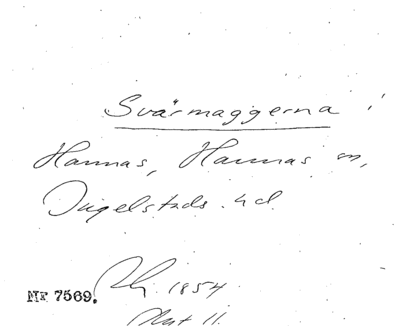 Svärmaggerna i
Hannas, Hannas sn,
Ingelstads hd
Nr 7569. 1854
11.